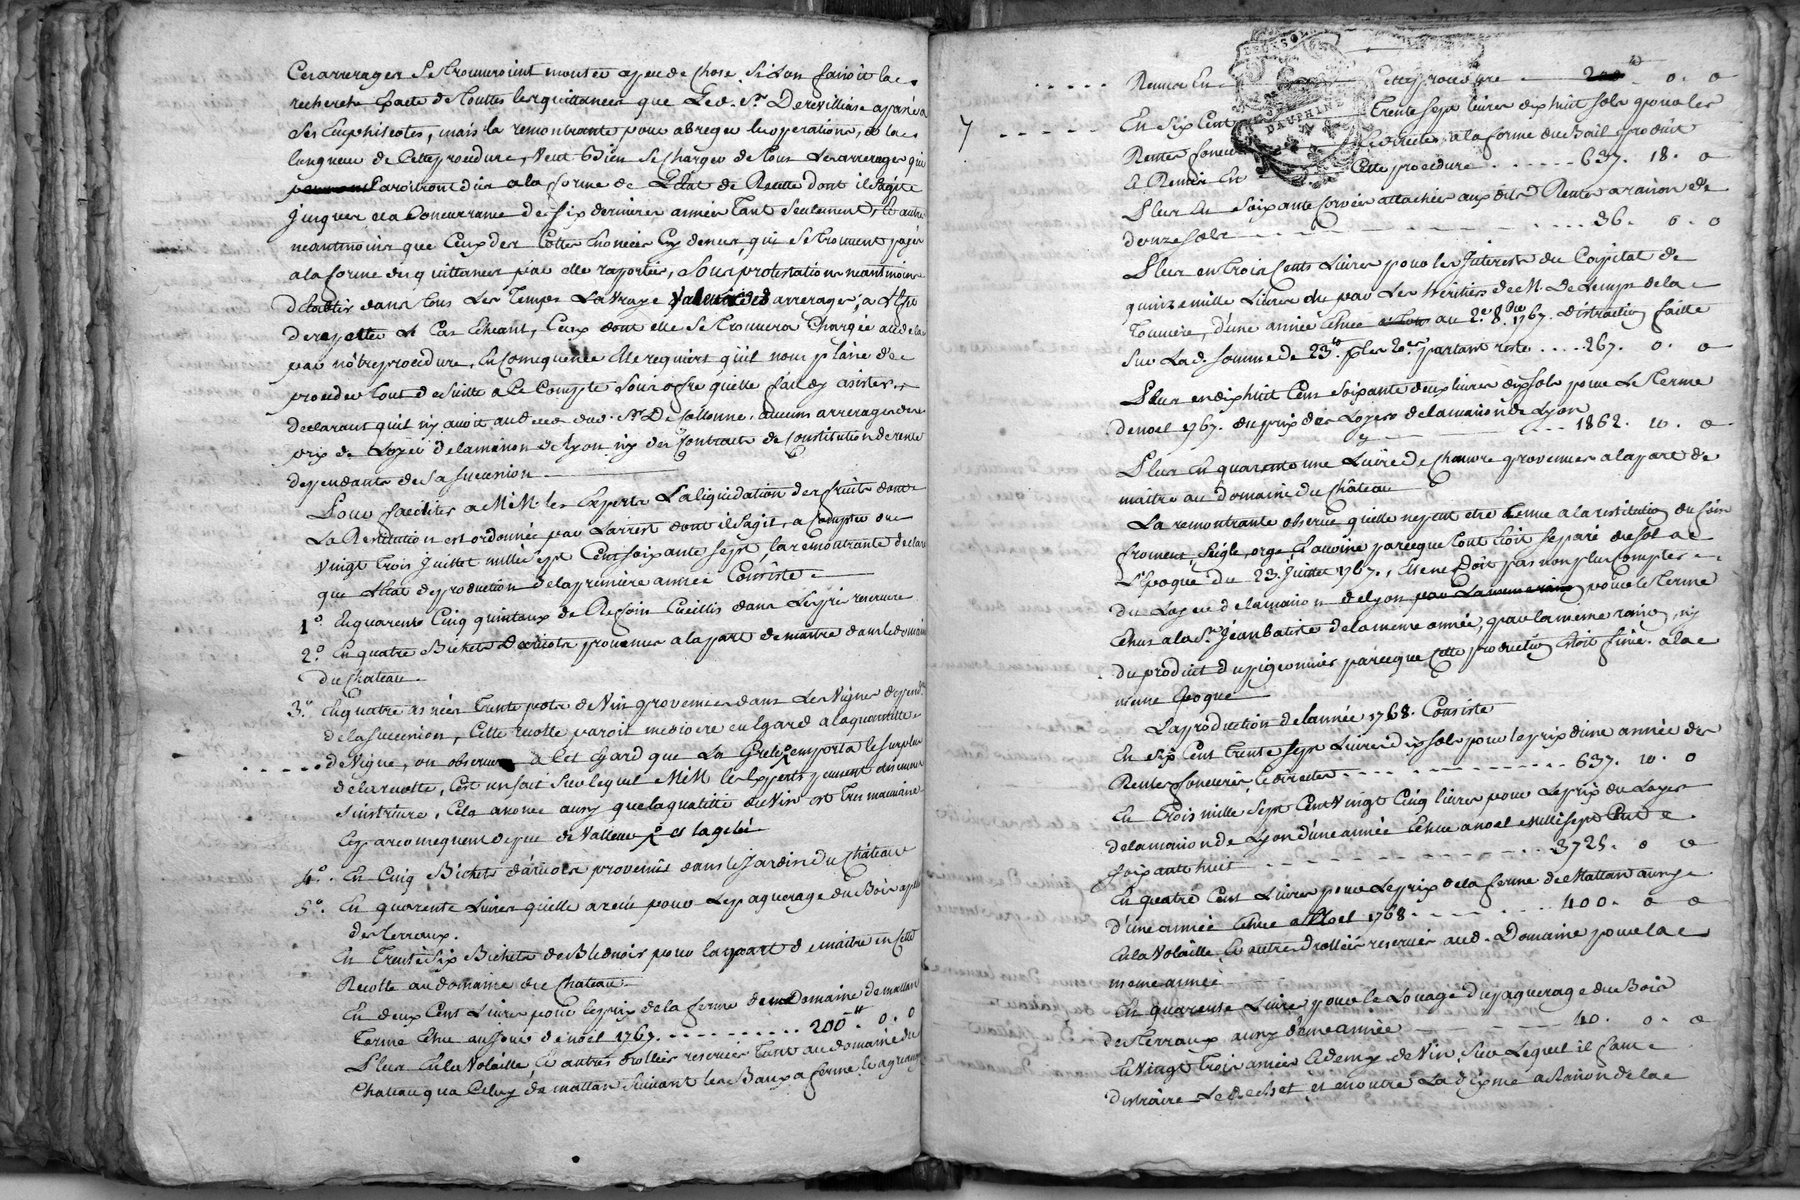 Ces arrerages se trouveroint montés a peu de chose, si l'on faisoit la
recherche exacte de touttes les quittances que led. Sr. Derevilliase a passé a
ses Emphiteotes, mais la remontrante pour abreger les operations, et la
longueur de cette procedure, veut bien se charger de tous les arrerages qui
paroitront dus a la forme de l'Etat de Recette dont il s'agit
jusques a la concurrance de six dernieres années tant seulement,
neantmoins que ceux des cottes qui se trouvent payés
a la forme des quittances par elle rapportées, sous protestations neantmoins
d'Etablir dans tous les temps la vraye valeur desd arrerages, a l'effet
de repetter le cas echeant, ceux dont elle se trouvera chargée audela
par nôtre procedure, En consequence Elle requiert qu'il nous plaise de
proceder tout de suitte a le Compte sous ofre quelle fait d'y asister,
declarant qu'il n'y avoit au deces dud. Sr. De Callonne, aucuns arrerages de
prix de Loyer de la maison de Lyon ny des Contracts de constitution de rente
dependants de sa succession
Pour faciliter a M.M. les Experts la liquidation des fruits dont
La Restitution est ordonnée par l'arrest dont il s'agit, a compter du
vingt trois juillet mille sept cent soixante sept, la remontrante declare
que l'Etat de production de la premiere année Consiste
1.° En quarente cinq quintaux de foin Cueillis dans les prés reservés
2.° En quatre Bichets d'aricots provenus a la part de maitre dans le domaine
du chateau.
3.° En quatre asnées trente pots de Vin provenues dans les Vignes depend.
de la succession, Cette recolte paroit mediocre eu Egard a la quantité
de Vigne, on observe a cet Egard que La Grele emporta le surplus
de la recolte, c'est un fait sur lequel M.M. les Experts peuvent aisement
s'instruire, Cela avoüe aussy que la qualité du Vin est tres mauvaise
et par consequent de peu de Valleur
4.° En Cinq Bichets d'aricots provenus dans le Jardin du Château
5.° En quarente Livres quelle a reçu pour le paquerage du Bois appellé
des terraux.
En trente six Bichets de Bled noir pour la part de maitre en cette
Recolte au domaine du Chateau
En deux Cent Livres pour le prix de la ferme du Domaine de mattan
Terme echu au jour de noel 1767. . . . . . . . . . 200tt. 0. 0
Plus En la Volaille, et autres drolies reservés tant au domaine du
Chateau qu'a celuy de mattan suivant les Baux a ferme
Remis En cette procedure 200tt 0. 0
7 En six Cent Trente sept livres dix huit sols pour les
Rentes foncieres et directes, a la forme du Bail produit
et Remis En Cette procedure . . . . . . 637. 18. 0
Plus En soixante corvées attachées auxdites Rentes a raison de
douze sols . . . . 36. 0. 0
Plus en trois Cents Livres pour les Interets du Capital de
quinze mille Livres du par les heritiers de M. De Leusse de la
Touviere, d'une année Echue au 2.e 8.bre 1767. distraction faitte
sur lad. somme de 33tt. pr les 20.es partant reste . . . . 267. 0. 0
Plus en dix huit Cent soixante deux livres dix sols pour le terme
de noel 1767. du prix des Loyers de la maison de Lyon . . . 1862. 10. 0
Plus En quarente une Livre de chanvre provenues a la part de
maitre au domaine du Château
La remontrante observe quelle ne peut etre tenue a la restitution du foin
froment, seigle, orge, l'avoine parceque tout étoit separé du sol a
l'Epoque du 23. Juillet 1767. Elle ne doit pas non plus compter
du Loyer de la maison de Lyon pour le terme
Echus a la St. Jean Batiste de la meme année, par la meme raison, ny
du produit du pigeonnier parceque cette production étoit finie a la
meme Epoque
La production de l'année 1768. Consiste
En six Cent trente sept Livres dix sols pour le prix d'une année des
Rentes foncieres, et directes . . . . . . . . . . 637. 10. 0
En trois mille sept Cent Vingt Cinq livres pour le prix du Loyer
de la maison de Lyon d'une année Echue a noel mille sept Cent
soixante huit . . . . . . . . . . 3725. 0 0
En quatre Cent Livres pour le prix de la ferme de Mattan aussy
d'une année Echue a Noel 1768. . . . . . 400. 0 0
En la Volaille, et autres drolies reservés aud. Domaine pour la
meme année
En quarente Livres pour le Louage du paquerage du Bois
des terraux aussy d'une année . . . . . . 40. 0. 0
En Vingt trois asnées et demy de Vin, sur lequel il faut
distraire le dechet, et en outre La dixme a Raison de la